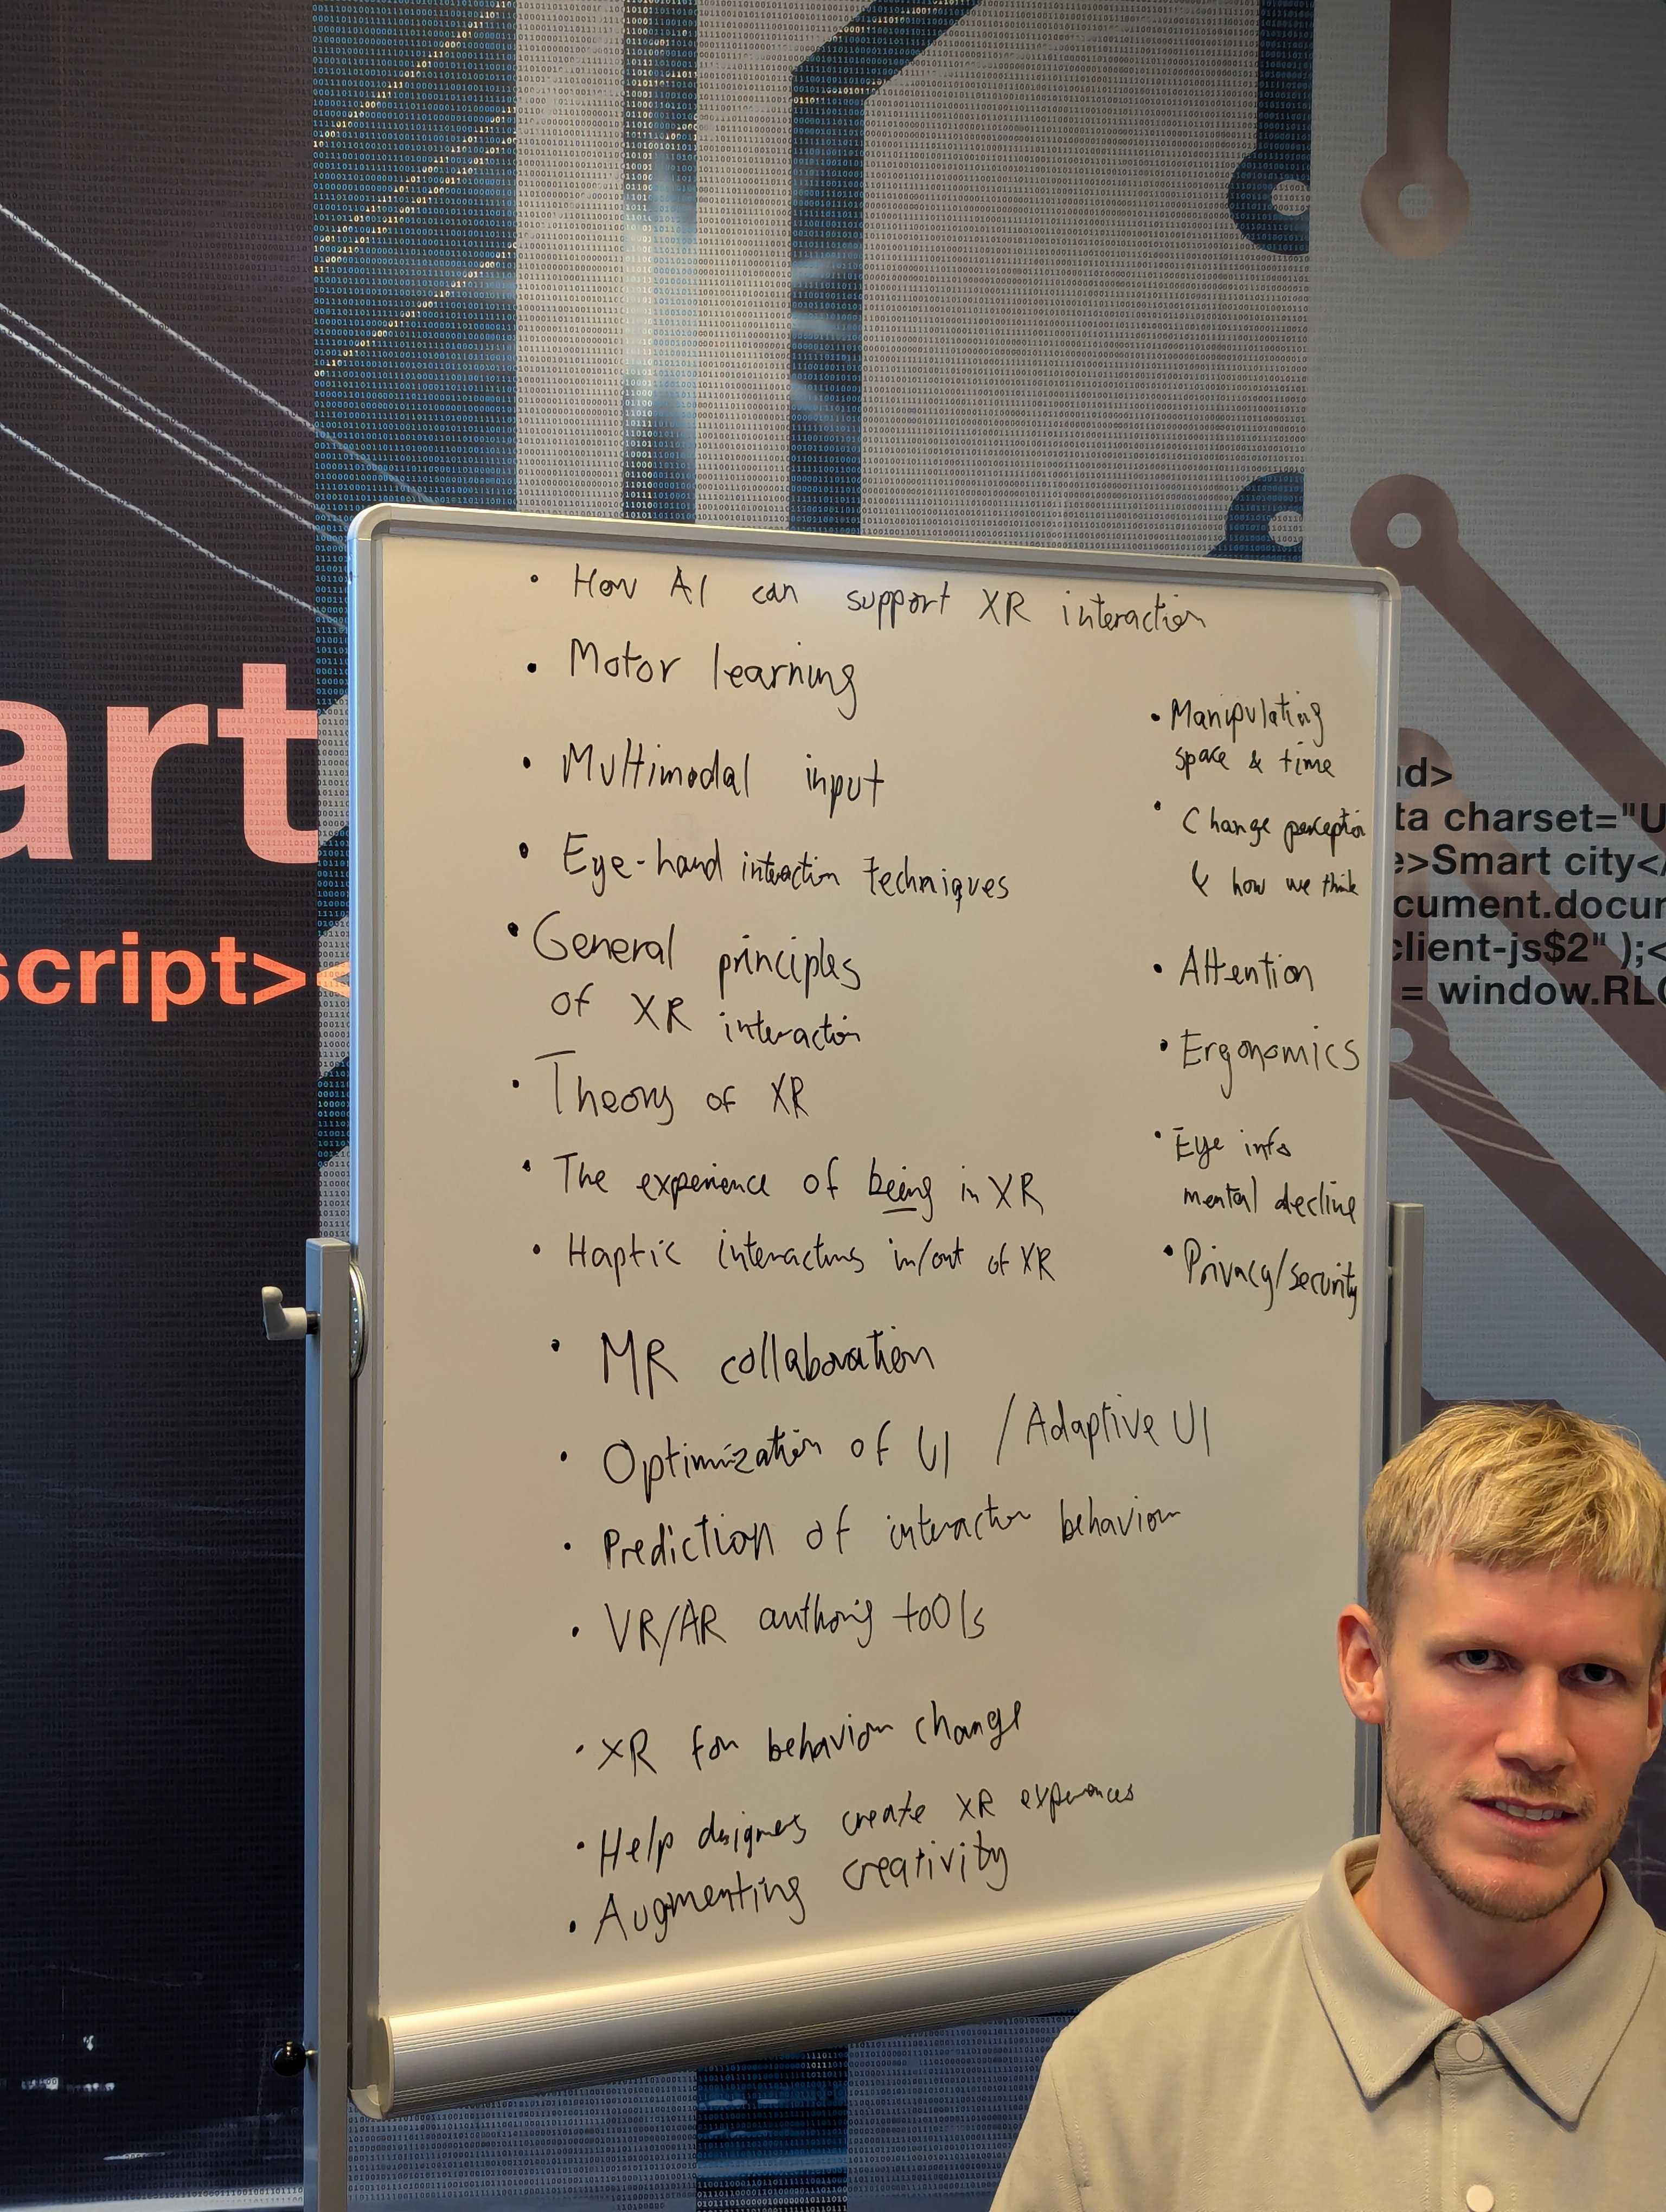 • How AI can support XR interaction
• Motor learning
• Multimodal input
• Eye-hand interaction techniques
• General principles
of XR interaction
• Theory of XR
• The experience of being in XR
• Haptic interactions in/out of XR
• MR collaboration
• Optimization of UI / Adaptive UI
• Prediction of interaction behavior
• VR/AR authoring tools
• XR for behavior change
• Help designers create XR experiences
• Augmenting creativity
• Manipulating
space & time
• Change perception
& how we think
• Attention
• Ergonomics
• Eye info
mental decline
• Privacy/security
art
script><
nd>
ta charset="U
e>Smart city</
cument.docum
client-js$2" );<
= window.RLC